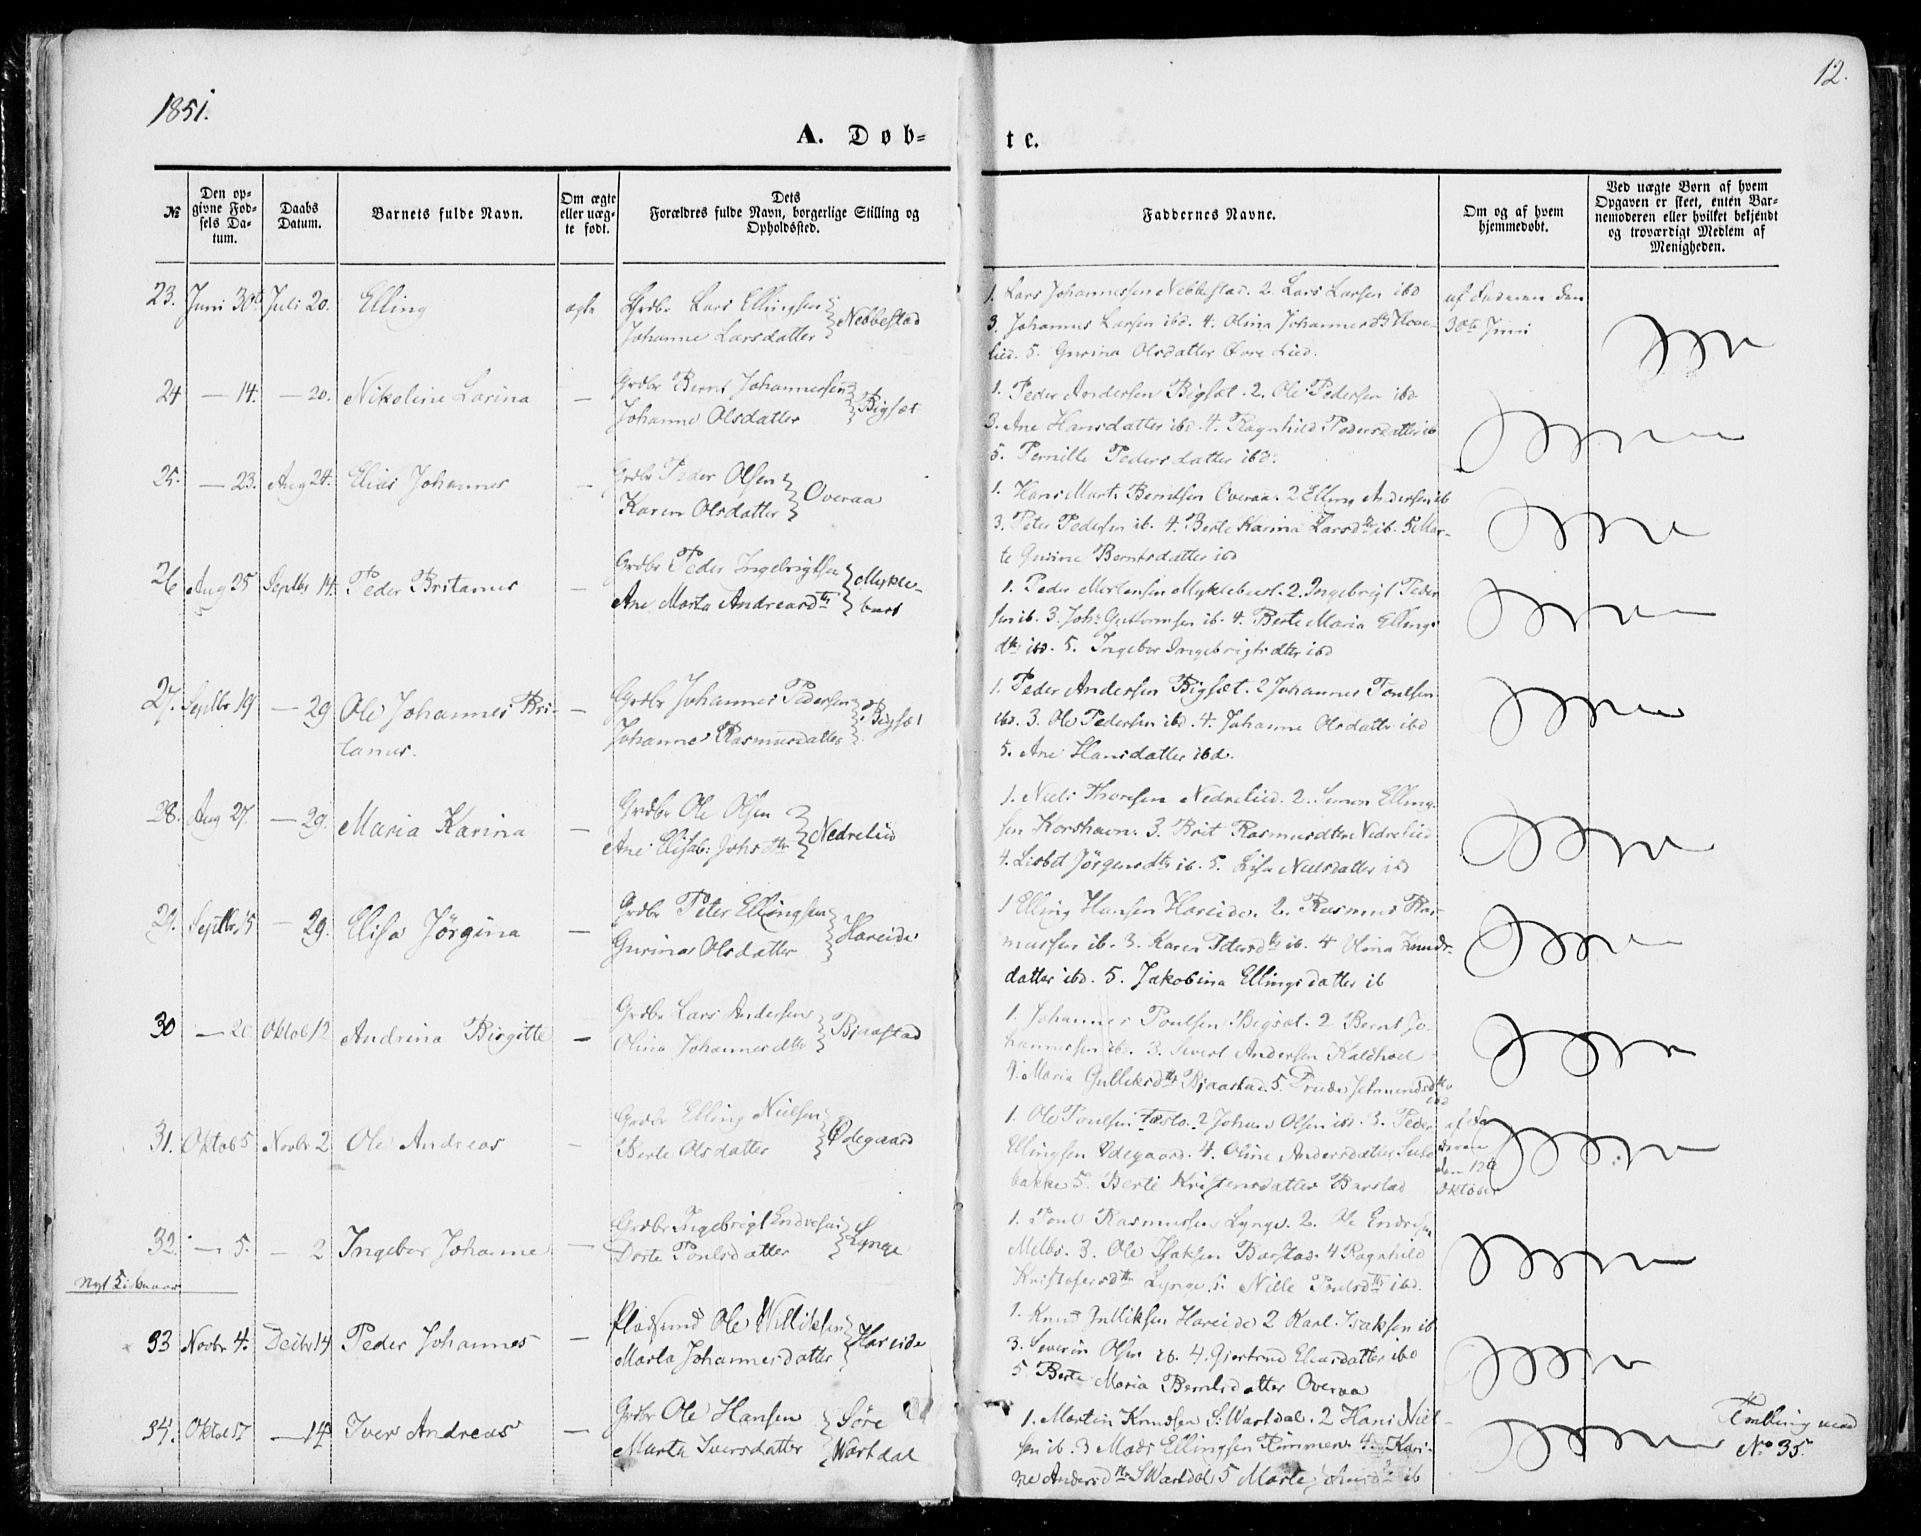 1851.
12.
A. Døb-
te.
№
Den op-
givne Fød-
sels Da-
tum.
Daabs
Datum.
Barnets fulde Navn.
Om ægte
eller uæg-
te født.
Dets
Forældres fulde Navn, borgerlige Stilling og
Opholdssted.
Faddernes Navne.
Om og af hvem
hjemmedøbt.
Ved uægte Børn af hvem
Opgaven er skeet, enten Bar-
nemoderen eller hvilket bekjendt
og troværdigt Medlem af
Menigheden.
23. Juni 30te Juli 20. Elling ægte Grdbr Lars Ellingsen
Johanne Larsdatter } Nebbestad
1. Lars Johannessen Nebbestad. 2. Lars Larsen ibd
3. Johannes Larsen ibd. 4. Olina Johannesdtr Hove-
lied. 5. Gurina Olsdatter Øvre Lied.
af Faderen den
30te Juni
24 — 14. — 20. Nikoline Larina — Grdbr Bernt Johannessen
Johanne Olsdatter } Bigsæt
1. Peder Andersen Bigsæt. 2. Ole Pedersen ibd
3. Ane Hansdatter ibd. 4. Ragnhild Pedersdatter ib
5. Pernille Pedersdatter ibd.
25. — 23. Aug 24. Elias Johannes — Grdbr Peder Olsen
Karen Olsdatter } Overaa
1. Hans Mart. Berntsen Overaa. 2 Elling Andersen ib
3. Peter Pedersen ib. 4. Berte Karina Larsdtr ib. 5 Mar-
te Gurine Berntsdatter ibd
26 Aug 25 Septbr 14. Peder Britanus — Grdbr Peder Ingebrigtsen
Ane Marta Andreasdtr } Mykle-
bust
1. Peder Mortensen Myklebust. 2. Ingebrigt Peder
sen ib. 3. Johs Guttormsen ib. 4. Berte Maria Ellings
dtr ibd. 5. Ingebor Ingebrigtsdtter ibd
27. Septbr 19 — 29 Ole Johannes Bri-
tanus. — Grdbr Johannes Pedersen
Johanne Rasmusdatter } Bigsæt
1. Peder Andersen Bigsæt. 2 Johannes Poulsen
ibd. 3. Ole Pedersen ibd. 4. Johanne Olsdatter ibd
5. Ane Hansdatter ibd.
28. Aug 27. — 29. Maria Karina — Grdbr Ole Olsen
Ane Elisab: Johsdtr } Nedrelied
1. Niels Thoresen Nedrelied. 2. Simon Elling-
sen Korshavn. 3. Brit Rasmusdtter Nedrelied
4. Lisbet Jørgensdtr ib. 5. Lisa Nielsdatter ibd
29. Septbr 15 — 29. Elisa Jørgina — Grdbr Peter Ellingsen
Gurina Olsdatter } Hareide
1 Elling Hansen Hareide. 2. Rasmus Ras-
mussen ib. 3. Karen Petersdtr ib. 4 Olina Knuds-
datter ibd. 5. Jakobina Ellingsdatter ib
30 — 20 Oktob 12 Andrina Birgitte — Grdbr Lars Andersen
Olina Johannesdtr } Bjaastad
1. Johannes Poulsen Bigsæt. 2 Bernt Jo-
hannessen ib. 3. Sivert Andersen Kaldhoel
4. Maria Gulliksdtr Bjaastad. 5. Trude Jetmundsdtr
ibd
31. Oktob 5 Novbr 2 Ole Andreas — Grdbr Elling Nielsen
Berte Olsdatter } Ødegaard
1. Ole Poulsen 2 Johan Olsen ibd. 3. Peder
Ellingsen Ødegaard. 4. Oline Andersdatter
bakke 5. Berte Kristensdatter Barstad
af Fa
deren
den 12te
Oktober
32. — 5. — 2 Ingebor Johanne — Grdbr Ingebrigt Endresen
Dorte Poulsdatter } Lynge
1. Poul Rasmussen Lynge. 2. Ole Endresen
Melbø. 3. Ole Isaksen Barstad. 4 Ragnhild
Kristofersdtr Lynge. 5. Nille Poulsdtr ibd.
Nyt Kirkeaar
33 Novbr 4. Decbr 14 Peder Johannes — Pladsmd Ole Villiksen
Marta Johannesdatter } Hareide
1. Knud Gulliksen Hareide 2 Karl Isaksen ib
3. Severin Olsen ib. 4. Gjertrud Eliasdatter ibd
5. Berte Maria Berntsdatter Overaa
34. Oktob 17 — 14 Iver Andreas — Grdbr Ole Hansen
Marta Iversdatter } Søre
Wartdal
1. Martin Knudsen S. Wartdal. 2 Hans Niel-
sen ib. 3 Mads Ellingsen Flimmen. 4. Kari-
ne Andersdtr S Wartdal 5 Marte ib
Tvilling med
No 35.